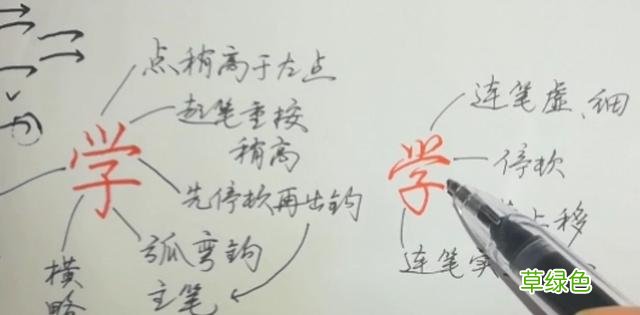 点稍高于左点
起笔重按
稍高
学
先停顿再出钩
弧弯钩
主笔
横
略
连笔虚、细
学
停顿
上移
连笔实
草绿色